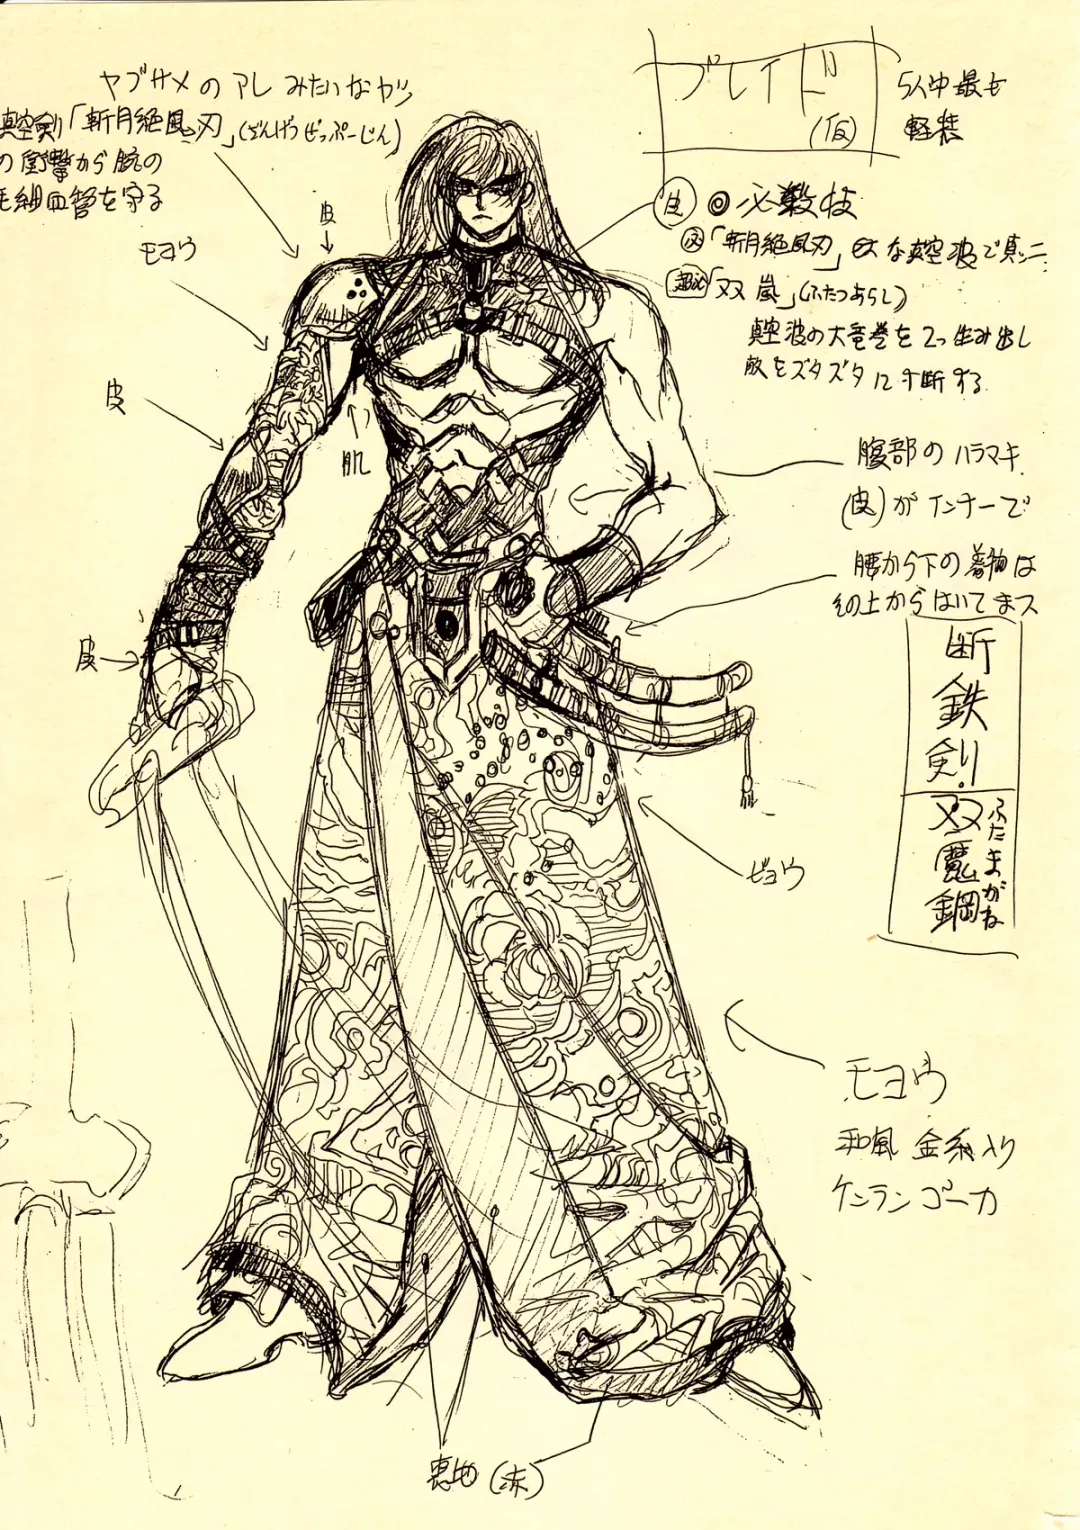 ヤブサメの アレ みたいなヤツ
真空剣「斬月絶風刃」(ざんげつぜっぷーじん)
の衝撃から腕の
毛細血管を守る
モヨウ
皮
皮
皮
肌
ブレイド
(仮)
5人中最も
軽装
皮
◎必殺技
必「斬月絶風刃」巨大な真空波で真ッ二
超必「双嵐」(ふたつあらし)
真空波の大竜巻を2つ生み出し
敵をズタズタに寸断する
腹部のハラマキ
(皮)がインナーで
腰から下の着物は
その上からはいてまス
断鉄剣
双魔鋼
ふたまがね
モヨウ
モヨウ
和風 金糸入り
ケンランゴーカ
裏地(赤)